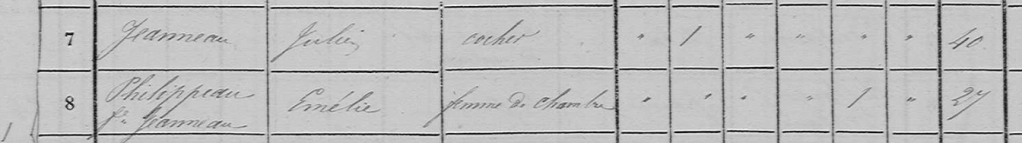 7 Jeanneau Julien cocher " 1 " " " " 40
8 Philippeau Emélie femme de chambre " " " " 1 " 27
fe Jeanneau